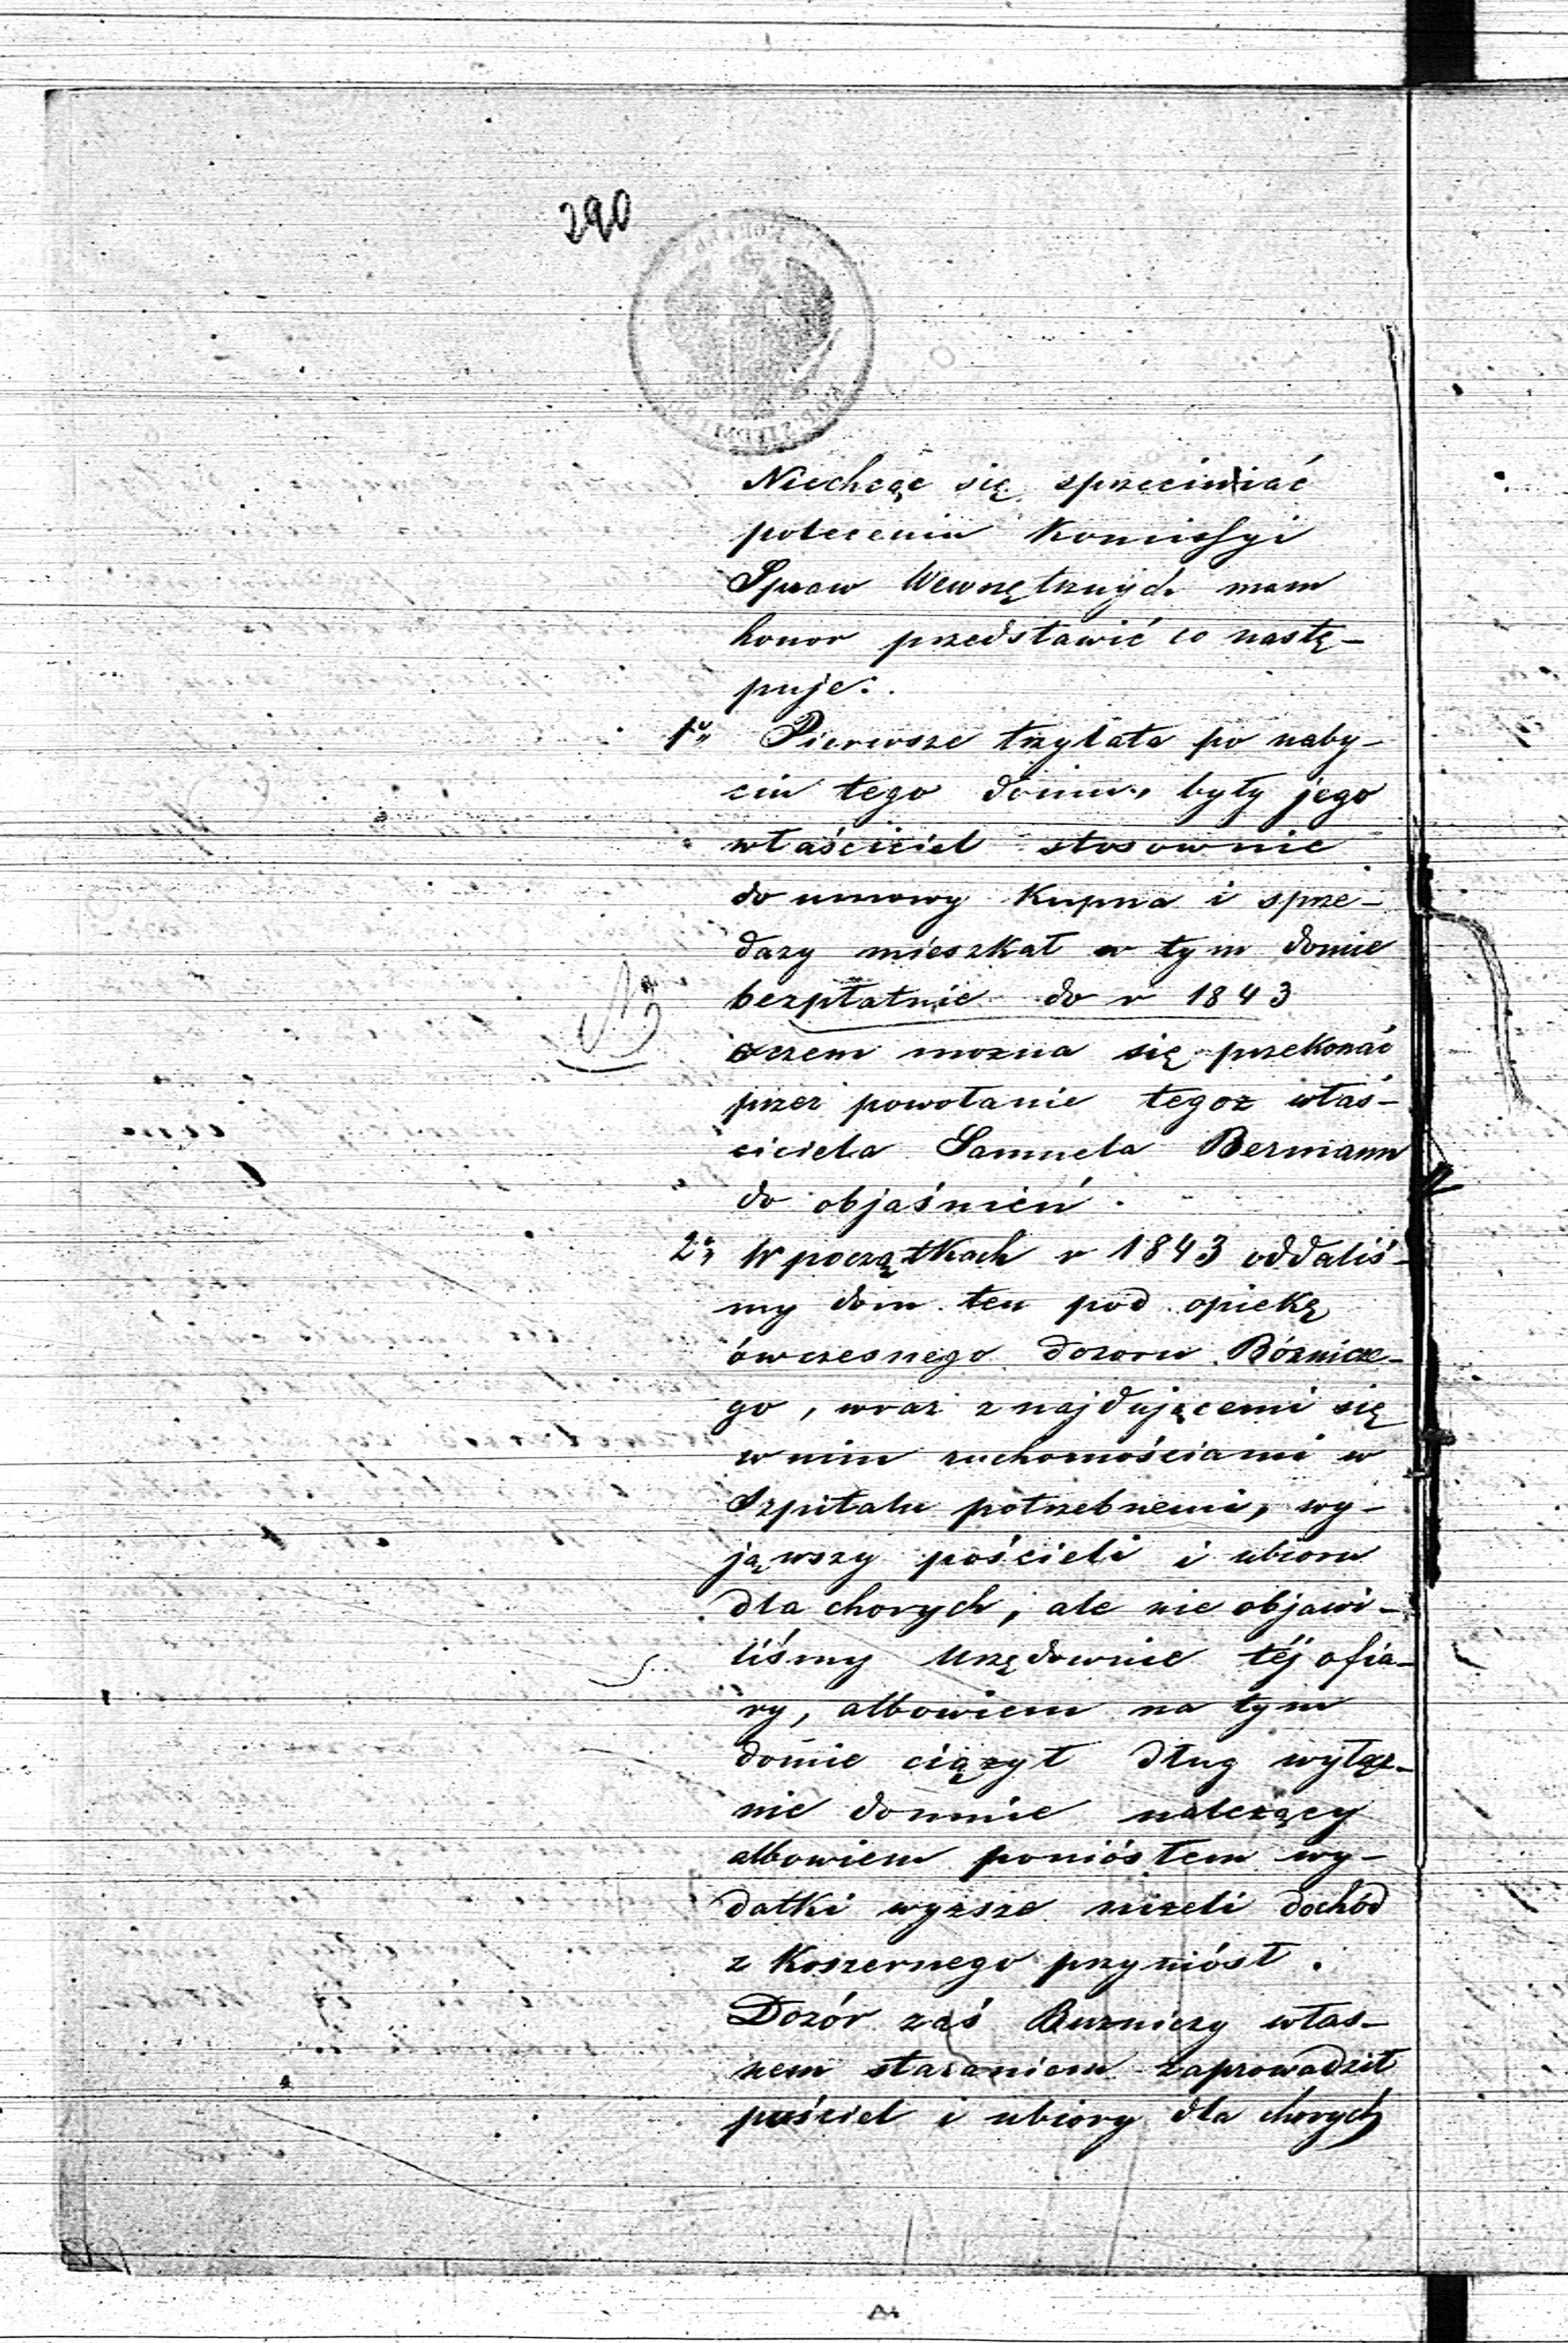 290
Niechcąc się sprzeciwiać
poleceniu Komissyi
Spraw Wewnętrznych mam
honor przedstawić co nastę-
puje:
1o Pierwsze trzylata po naby-
ciu tego domu, były jego
właściciel stosownie
do umowy Kupna i sprze-
dazy mieszkał w tym domie
bezpłatnie do r 1843
NB
oczem mozna się przekonać
przez powołanie tegoz właś-
ciciela Samuela Bermann
do objaśnień.
2o W początkach r 1843 oddaliś-
my dom ten pod opiekę
ówczesnego dozoru Bóznicze-
go, wraz znajdującemi się
w nim ruchomościami w
Szpitalu potrzebnemi, wy-
jąwszy pościeli i ubioru
dla chorych, ale nie objawi-
liśmy Urzędownie téj ofia-
ry, albowiem na tym
domie ciązył dług wyłącz-
nie domnie nalezący
albowiem poniósłem wy-
datki wyzsze nizeli dochód
z Koszernego przyniósł.
Dozór zaś Buzniczy włas-
nem staraniem zaprowadził
pościel i ubiory dla chorych